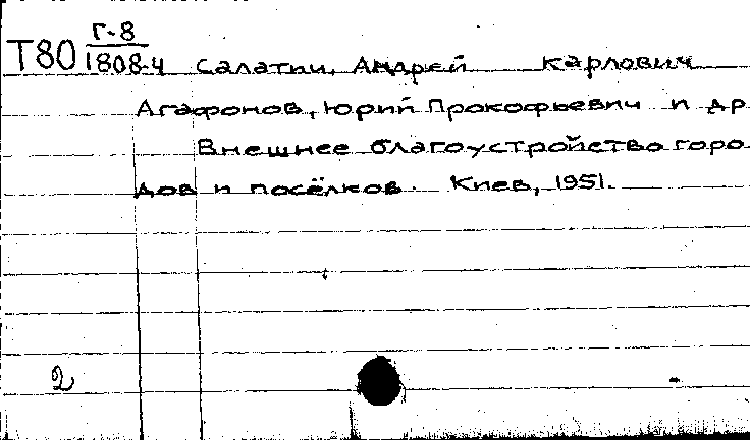 Т80 Г-8
1808-4 Салатин, Андрей Карлович
Агафонов, Юрий Прокофьевич и др
Внешнее благоустройство горо
дов и посёлков. Киев, 1951.
2